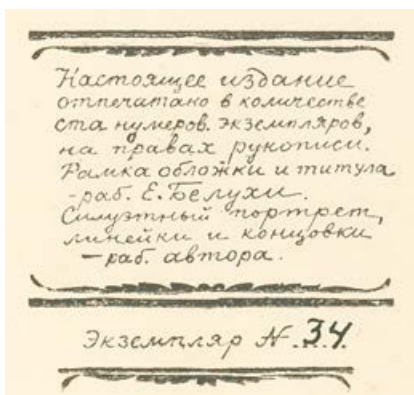 Настоящее издание
отпечатано в количестве
ста нумеров. экземпляров,
на правах рукописи.
Рамка обложки и титула
-раб. Е. Белухи.
Силуэтный портрет,
линейки и концовки
— раб. автора.
Экземпляр №. 34.